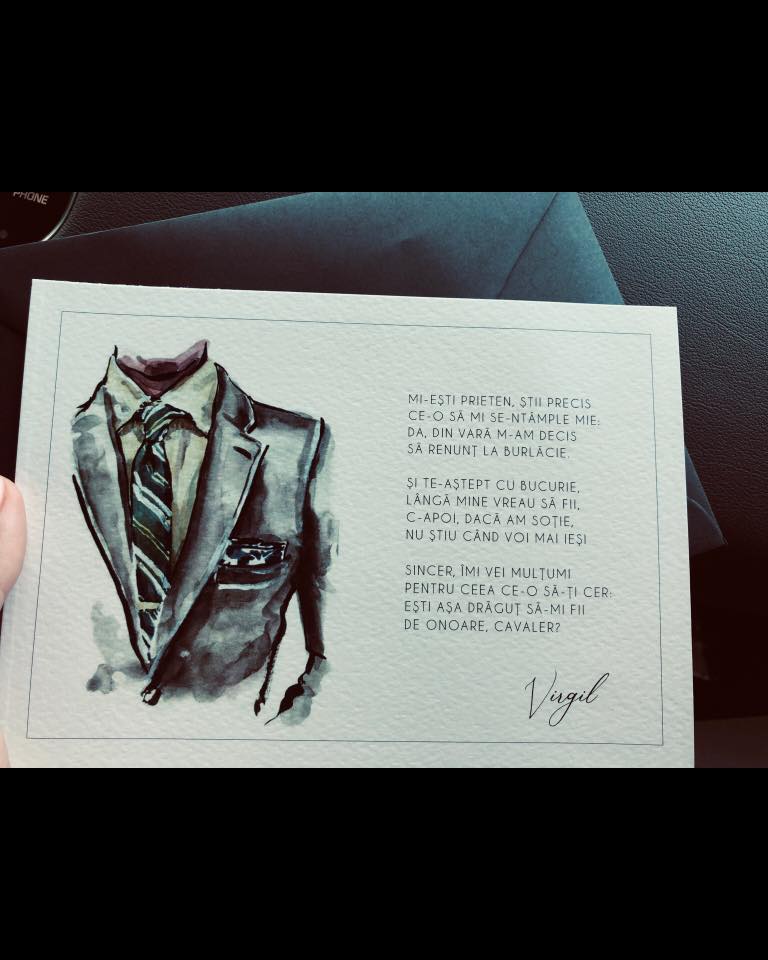 PHONE
MI-EȘTI PRIETEN, ȘTII PRECIS
CE-O SĂ MI SE-NTÂMPLE MIE:
DA, DIN VARĂ M-AM DECIS
SĂ RENUNȚ LA BURLĂCIE.
ȘI TE-AȘTEPT CU BUCURIE,
LÂNGĂ MINE VREAU SĂ FII,
C-APOI, DACĂ AM SOȚIE,
NU ȘTIU CÂND VOI MAI IEȘI
SINCER, ÎMI VEI MULȚUMI
PENTRU CEEA CE-O SĂ-ȚI CER:
EȘTI AȘA DRĂGUȚ SĂ-MI FII
DE ONOARE, CAVALER?
Virgil